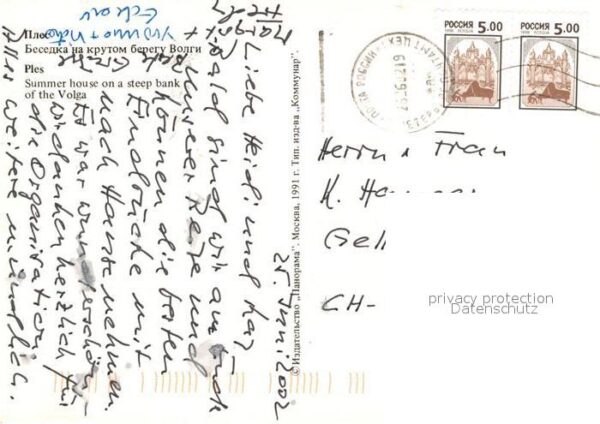 Плес
Беседка на крутом берегу Волги
Ples
Summer house on a steep bank
of the Volga
© Издательство „Панорама". Москва, 1991 г. Тип. изд-ва „Коммунар".
РОССИЯ 5.00
РОССИЯ 5.00
25. Juni 2002
Liebe Heidi und
Bald sind wir am Ende
unserer Reise und
können die besten
Eindrücke mit
nach Hause nehmen.
Es war wunderschön
wir danken herzlich für
die Organisation
Alles weitere mündlich.
Herrn + Frau
K.
CH-
privacy protection
Datenschutz